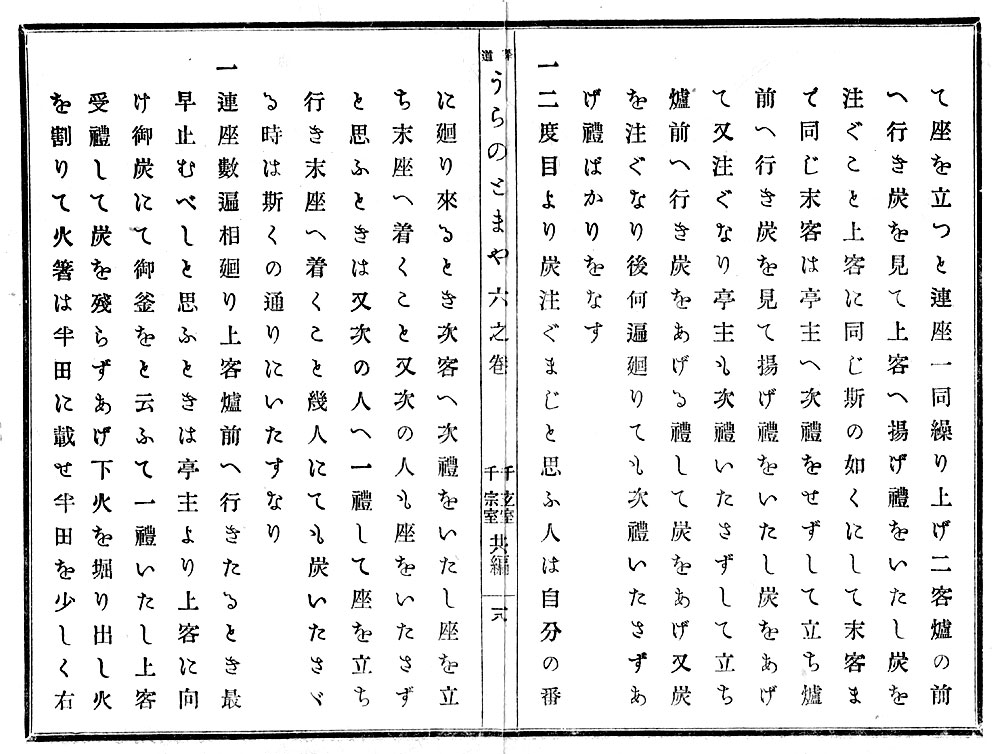 て座を立つと連座一同繰り上げ二客爐の前
へ行き炭を見て上客へ揚げ禮をいたし炭を
注ぐこと上客に同じ斯の如くにして末客ま
で同じ末客は亭主へ次禮をせずして立ち爐
前へ行き炭を見て揚げ禮をいたし炭をあげ
て又注ぐなり亭主も次禮いたさずして立ち
爐前へ行き炭をあげる禮して炭をあげ又炭
を注ぐなり後何遍廻りても次禮いたさずあ
げ禮ばかりをなす
一二度目より炭注ぐまじと思ふ人は自分の番
茶道 うらのとまや 六之卷 千玄室 千宗室 共編
に廻り來るとき次客へ次禮をいたし座を立
ち末座へ着くこと又次の人も座をいたさず
と思ふときは又次の人へ一禮して座を立ち
行き末座へ着くこと幾人にても炭いたさゞ
る時は斯くの通りにいたすなり
一連座數遍相廻り上客爐前へ行きたるとき最
早止むべしと思ふときは亭主より上客に向
け御炭にて御釜をと云ふて一禮いたし上客
受禮して炭を殘らずあげ下火を堀り出し火
を割りて火箸は半田に載せ半田を少しく右